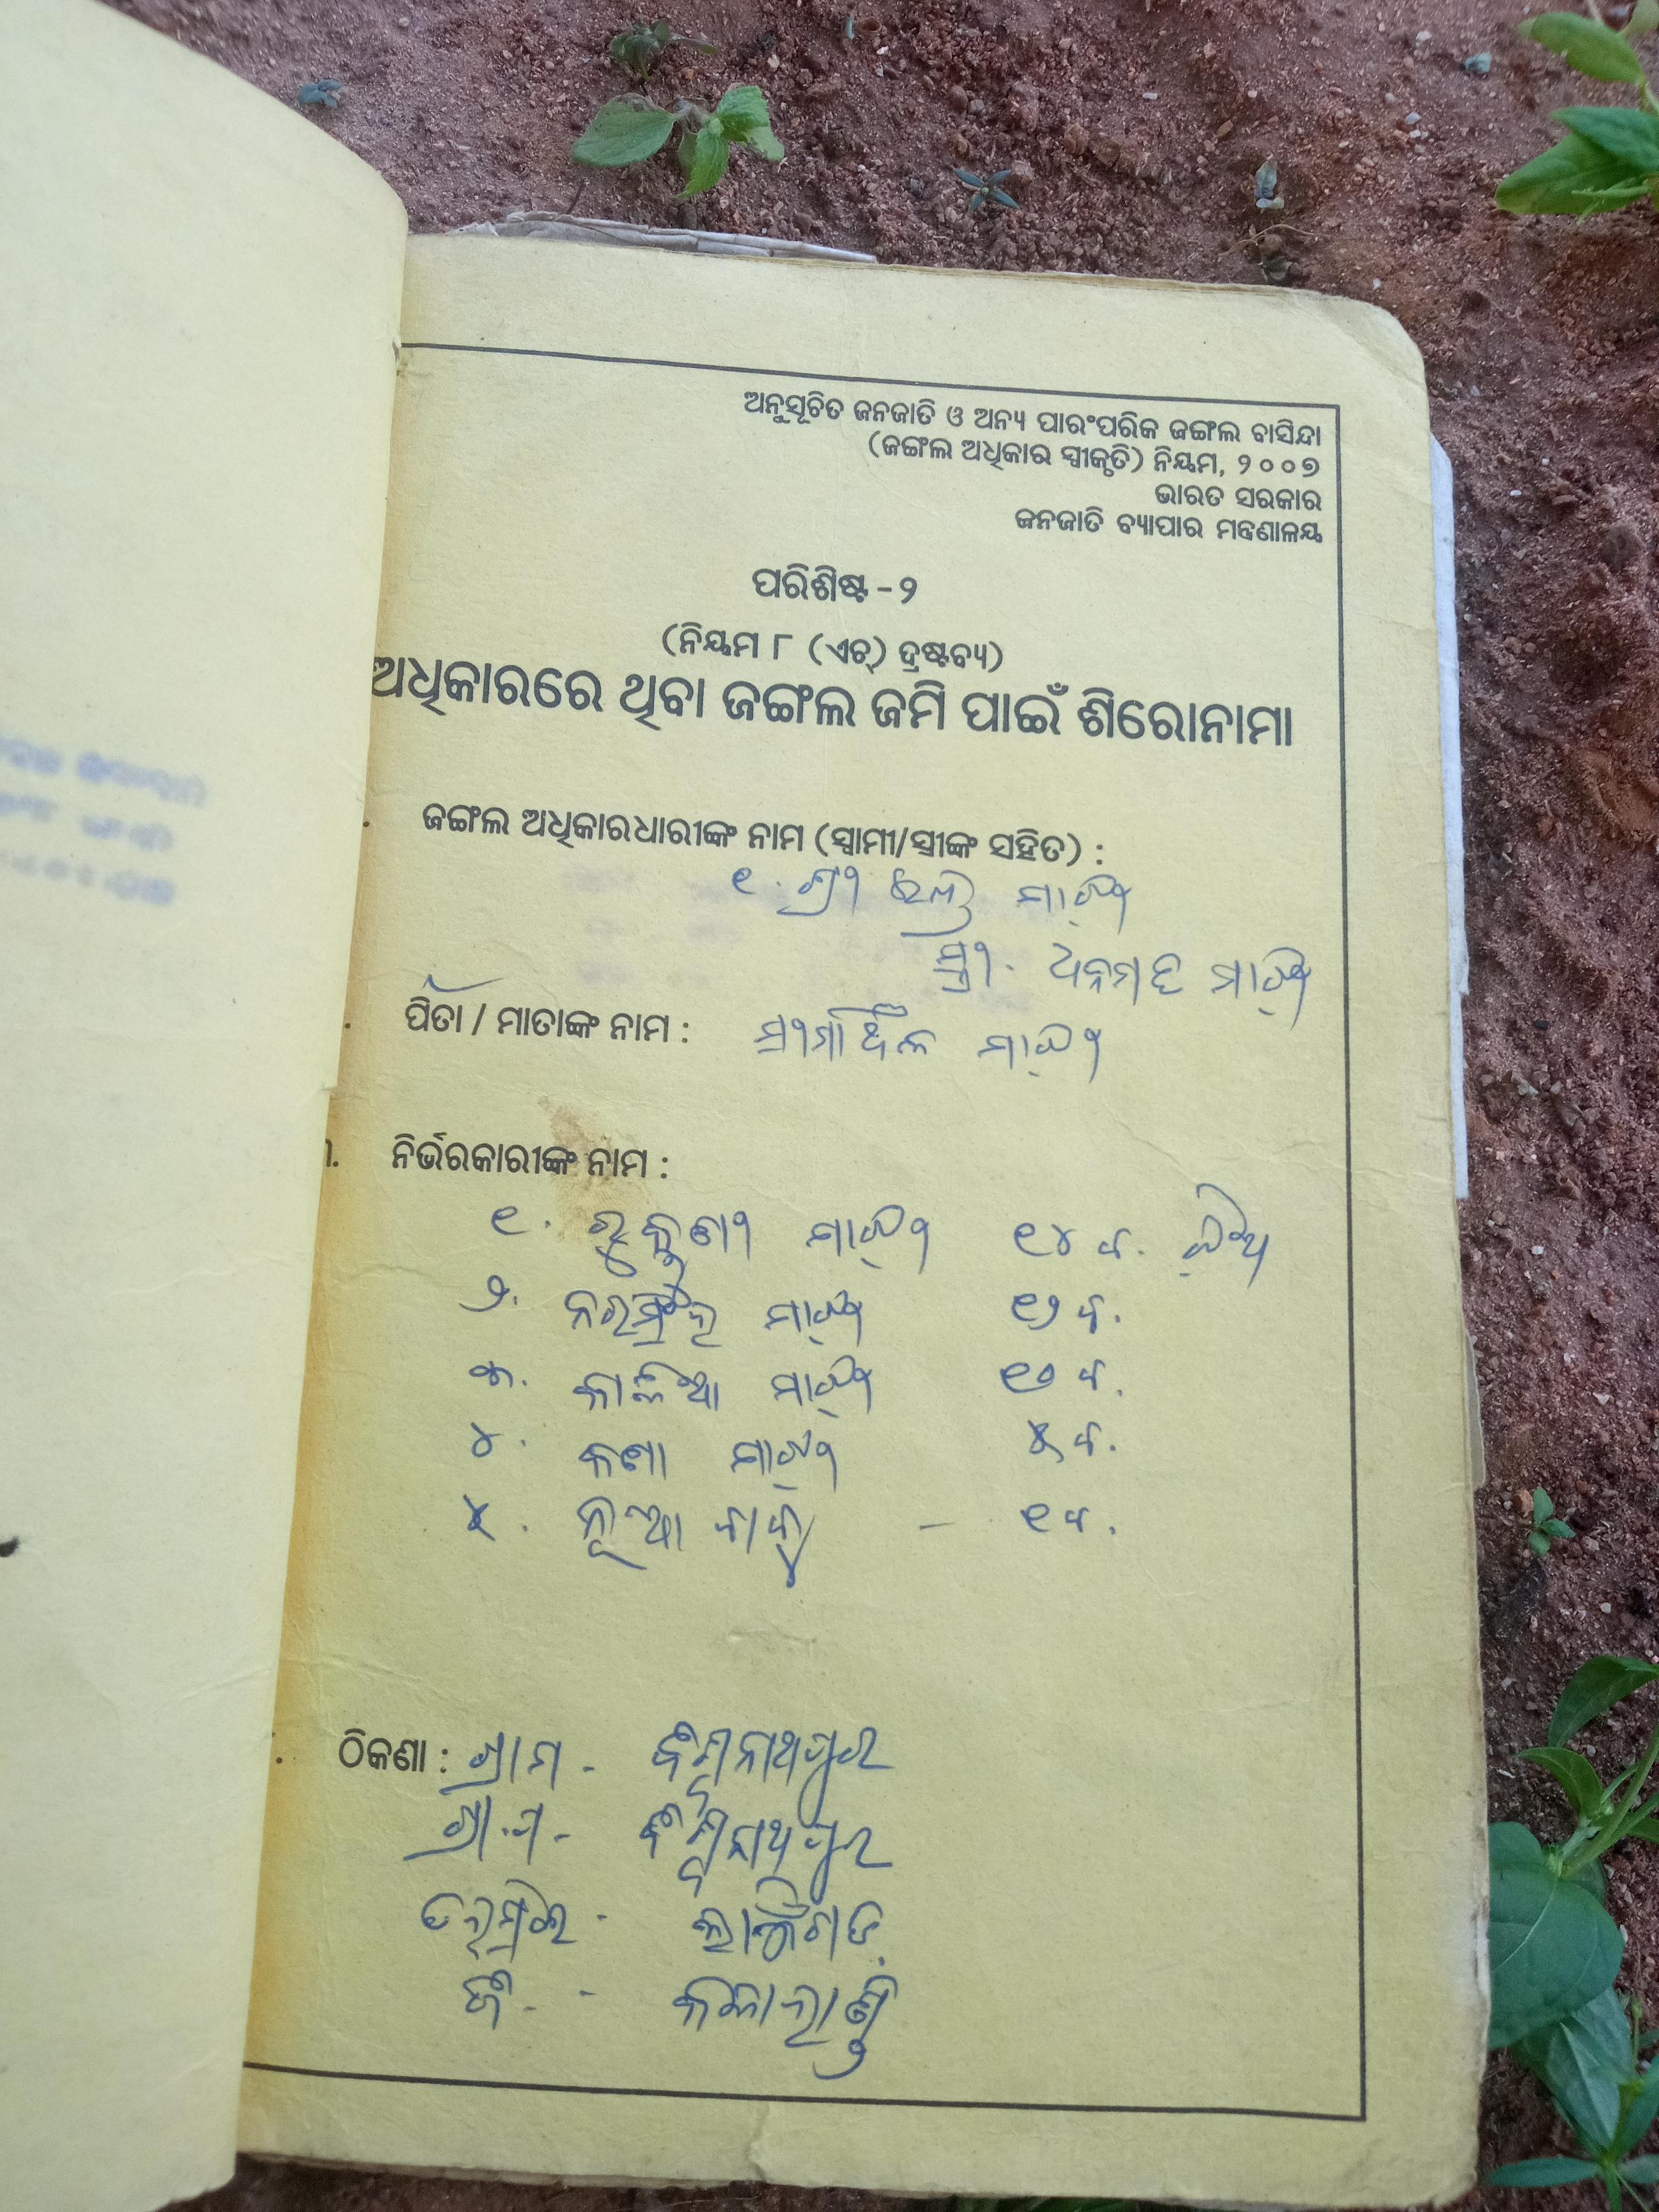 ଅନୁସୂଚିତ ଜନଜାତି ଓ ଅନ୍ୟ ପାରଂପରିକ ଜଙ୍ଗଲ ବାସିନ୍ଦା
(ଜଙ୍ଗଲ ଅଧିକାର ସ୍ୱୀକୃତି) ନିୟମ, ୨୦୦୭
ଭାରତ ସରକାର
ଜନଜାତି ବ୍ୟାପାର ମନ୍ତ୍ରଣାଳୟ
ପରିଶିଷ୍ଟ - ୨
(ନିୟମ ୮ (ଏଚ୍) ଦ୍ରଷ୍ଟବ୍ୟ)
ଅଧିକାରରେ ଥିବା ଜଙ୍ଗଲ ଜମି ପାଇଁ ଶିରୋନାମା
ଜଙ୍ଗଲ ଅଧିକାରଧାରୀଙ୍କ ନାମ (ସ୍ୱାମୀ/ସ୍ତ୍ରୀଙ୍କ ସହିତ) :
୧. ଶ୍ରୀ ମାଝୀ
ସ୍ତ୍ରୀ. ମାଝୀ
ପିତା / ମାତାଙ୍କ ନାମ : ମାଝୀ
ନିର୍ଭରକାରୀଙ୍କ ନାମ :
୧. ରୁକୁଣୀ ମାଝୀ ୧୪ ବ. ଝିଅ
୨. ମାଝୀ ୧୨ ବ.
୩. କାଳିଆ ମାଝୀ ୧୦ ବ.
୪. ମାଝୀ ୫ ବ.
୫. ନୂଆ ବାବୁ - ୧ ବ.
ଠିକଣା : ଗ୍ରାମ - ବିଶ୍ୱନାଥପୁର
ଗ୍ରା.ପ - ବିଶ୍ୱନାଥପୁର
ତହସିଲ - ଲାଞ୍ଜିଗଡ଼
ଜି. - କଳାହାଣ୍ଡି